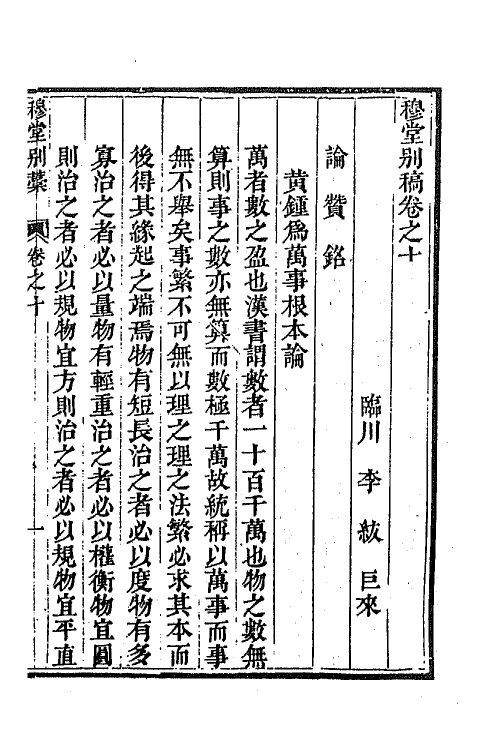 穆堂别稿卷之十
臨川 李紱 巨來
論 贊 銘
黄鍾爲萬事根本論
萬者數之盈也漢書謂數者一十百千萬也物之數無
算則事之數亦無算而數極千萬故統稱以萬事而事
無不舉矣事繁不可無以理之理之法繁必求其本而
後得其緣起之端焉物有短長治之者必以度物有多
寡治之者必以量物有輕重治之者必以權衡物宜圓
則治之者必以規物宜方則治之者必以規物宜平直
穆堂别藁 卷之十 一